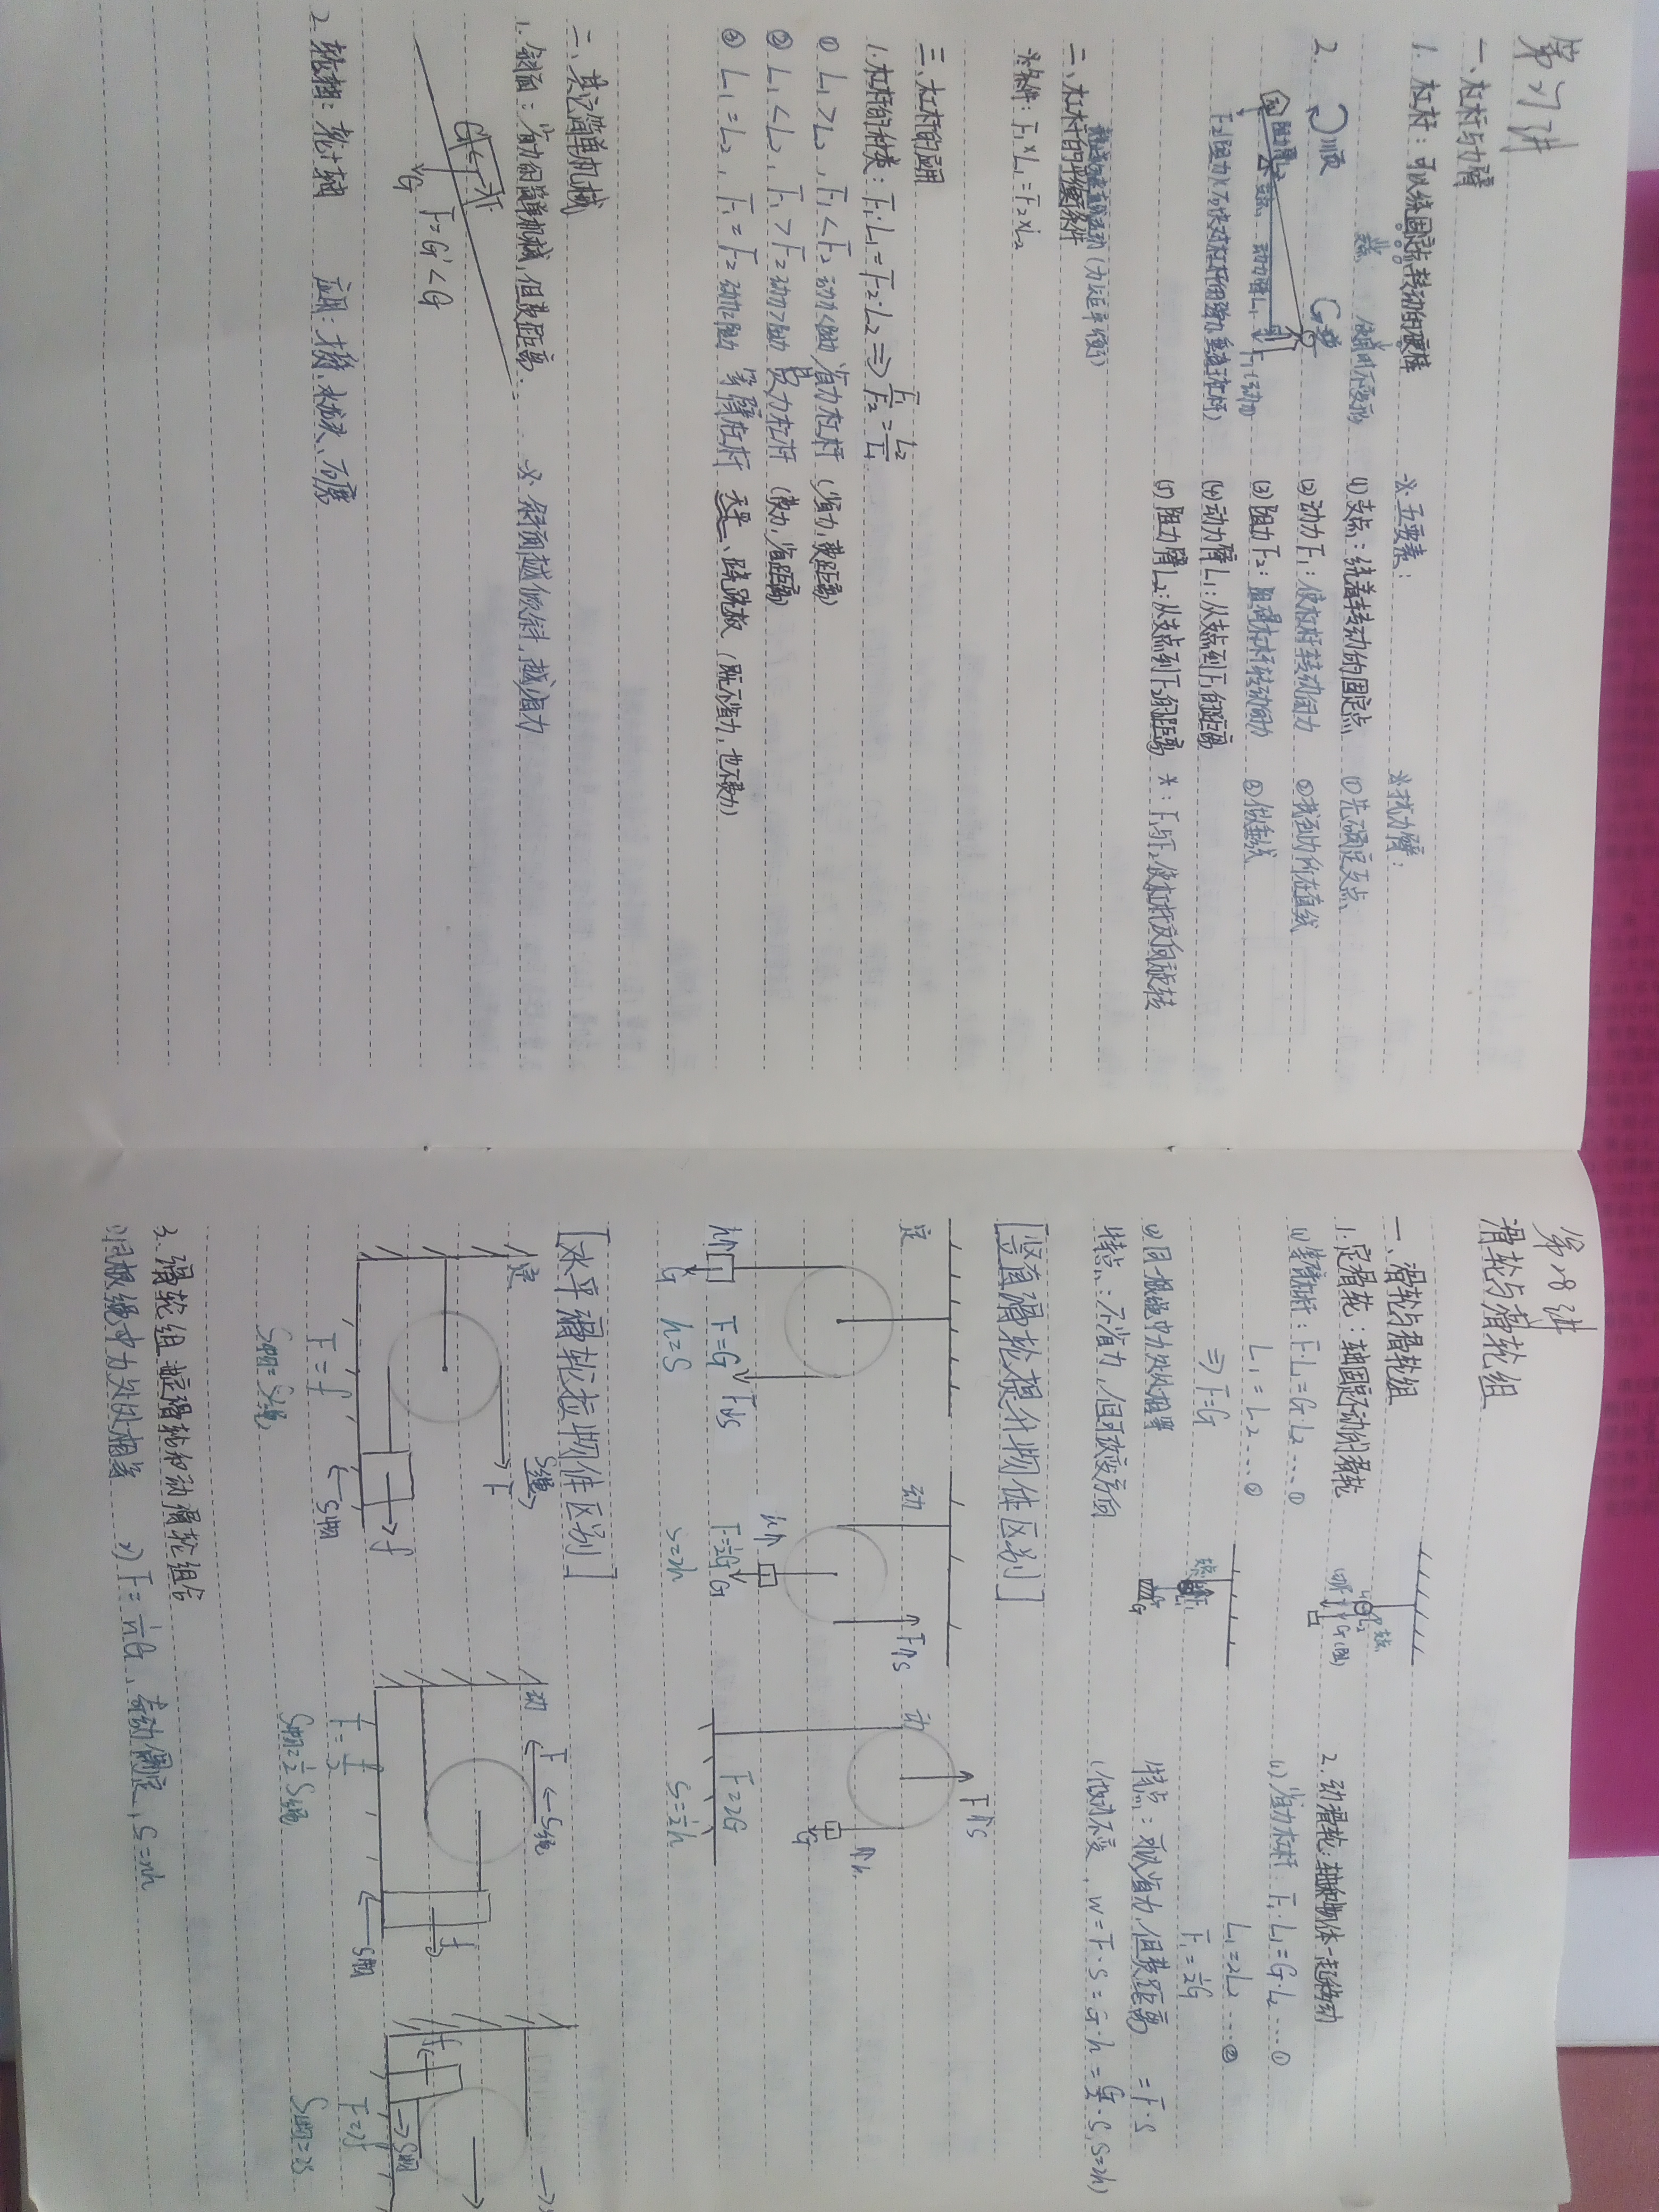 第刃讲
一、杠杆与力臂
1. 杠杆：可以绕固定点转动的硬棒
支点
使用时不变形
2. 顺
阻力臂L2
支点
动力臂L1
F1(动力)
※五要素：
(1) 支点：绕着转动的固定点
(2) 动力F1：使杠杆转动的力
(3) 阻力F2：阻碍杠杆转动的力
(4) 动力臂L1：从支点到F1的距离
(5) 阻力臂L2：从支点到F2的距离
*：F1与F2使杠杆反向旋转
※找力臂：
① 先确定支点
② 找到力所在直线
③ 作垂线
二、杠杆的平衡条件
※条件：F1×L1=F2×L2
三、杠杆的应用
1. 杠杆的种类：F1·L1=F2·L2⇒F1/F2=L2/L1
① L1>L2，F1<F2 动力<阻力 省力杠杆（省力，费距离）
② L1<L2，F1>F2 动力>阻力 费力杠杆（费力，省距离）
③ L1=L2，F1=F2 动力=阻力 等臂杠杆 天平、跷跷板（既不省力，也不费力）
二、其它简单机械
1. 斜面：省力的简单机械，但费距离。
※斜面越倾斜，越省力
F=G'<G
G
2. 轮轴：轮+轴
应用：扳手、水龙头、石磨
第18讲
滑轮与滑轮组
一、滑轮与滑轮组
1. 定滑轮：轴固定不动的滑轮
(1) 等臂杠杆：F·L1=G·L2 … ①
L1=L2 … ②
⇒F=G
(2) 同一根绳中力处处相等
特点：不省力，但可改变方向
2. 动滑轮：轴和物体一起移动
(1) 省力杠杆：F1·L1=G·L2 … ①
L1=2L2 … ②
F1=½G
特点：可以省力，但费距离
=F·S
(做功不变，W=F·S=G·h=G/2·S，S=2h)
[竖直滑轮提升物体区别]
定
h
G
F=G
h=S
F
S
动
h
G
F=½G
S=2h
F
S
动
F
S
G
h
F=2G
S=½h
[水平滑轮拉物体区别]
定
S绳
F
f
S物
F=f
S物=S绳
动
F
S绳
f
S物
F=f/2
S物=½S绳
f
S物
F=2f
S物=2S
3. 滑轮组 定滑轮和动滑轮组合
1) 同根绳中力处处相当
2) F=1/n G，奇动偶定，S=nh